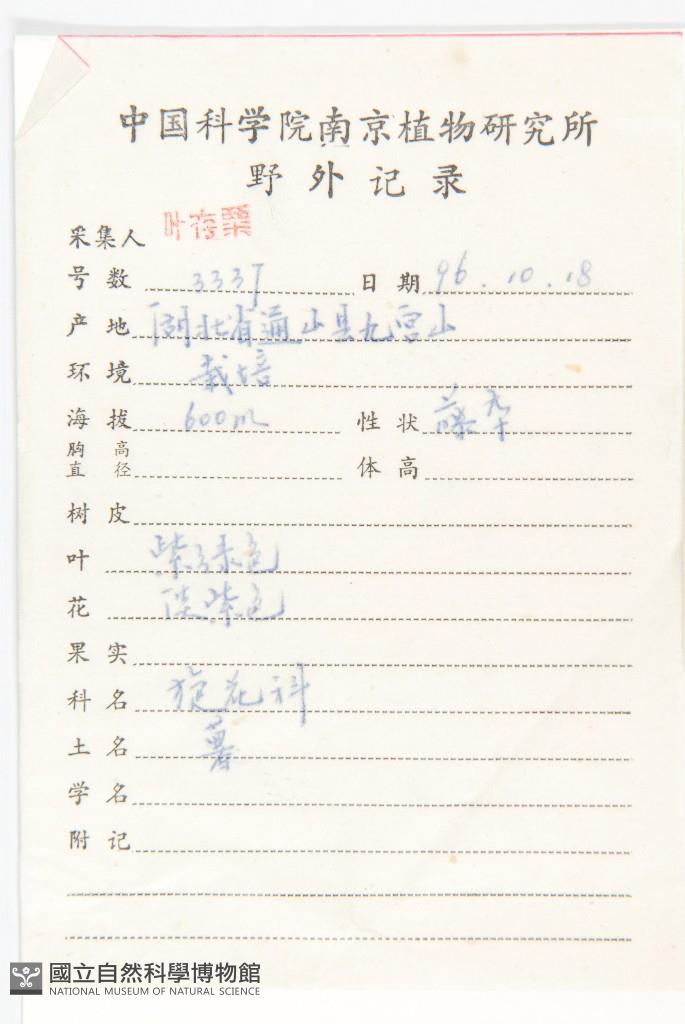 中国科学院南京植物研究所
野外记录
采集人 叶存栗
号数 3337 日期 96.10.18
产地 湖北省通山县九宫山
环境 栽培
海拔 600m 性状 藤本
胸高直径 体高
树皮
叶 紫绿色
花 淡紫色
果实
科名 旋花科
土名 薯
学名
附记
國立自然科學博物館
NATIONAL MUSEUM OF NATURAL SCIENCE